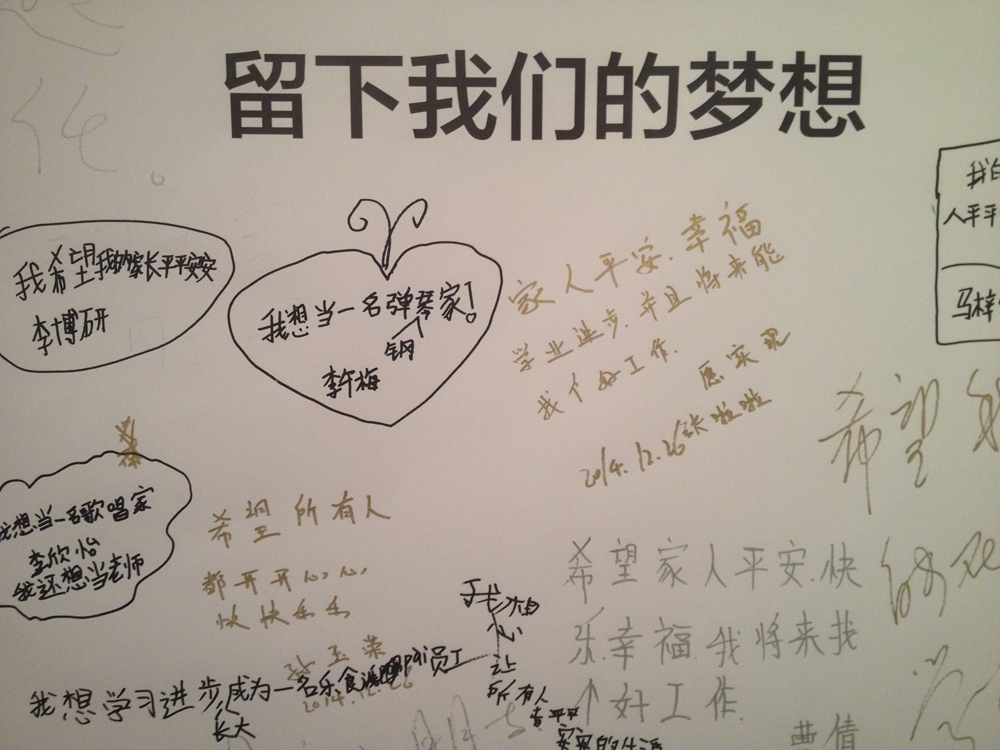 留下我们的梦想
我希望我的家长平平安安
李博研
我想当一名弹琴家!
钢
李午梅
家人平安.幸福
学业进步.并且将来能
找个好工作.
愿实现
2014.12.26
我的
人平平
马梓
希望我
我想当一名歌唱家
李欣怡
我还想当老师
希望所有人
都开开心心,
快快乐乐
玉荣
2014.12.26
希望家人平安.快
乐.幸福.我将来找
个好工作.
曹倩
我想
让
所有人
平平
安安的生活
我想学习进步成为一名乐
员工
长大